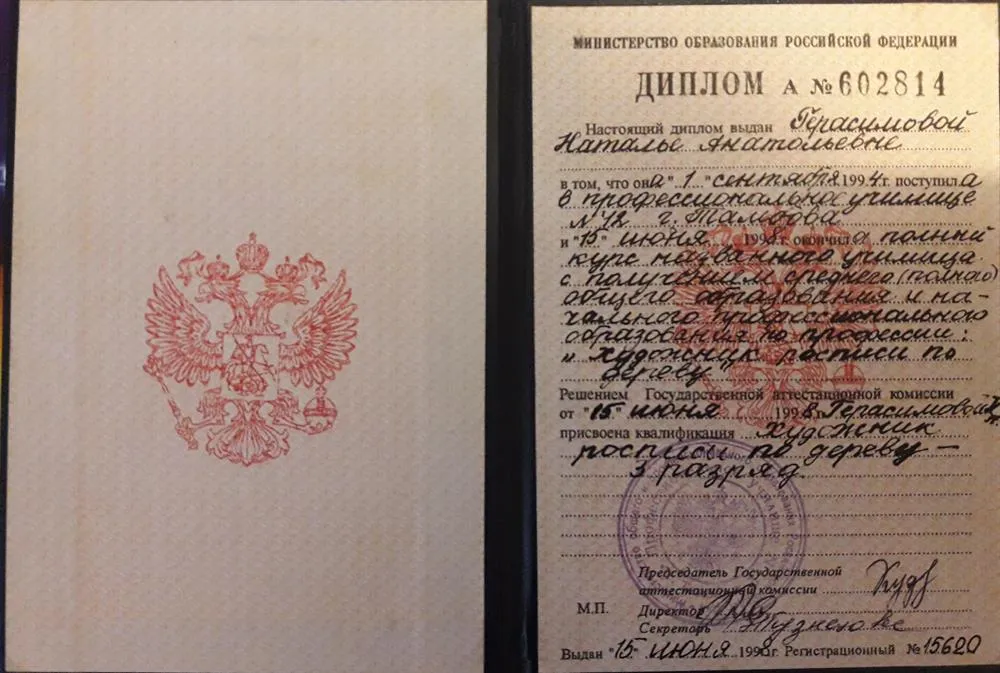 МИНИСТЕРСТВО ОБРАЗОВАНИЯ РОССИЙСКОЙ ФЕДЕРАЦИИ
ДИПЛОМ А № 602814
Настоящий диплом выдан Герасимовой
Наталье Анатольевне
в том, что она "1" сентября 1994 г. поступила
в профессиональное училище
N 12 г. Тамбова
и "15" июня 1998 г. окончила полный
курс названного училища
с получением среднего (полного)
общего образования и на-
чального профессионального
образования по профессии,
"художник росписи по
дереву"
Решением Государственной аттестационной комиссии
от "15" июня 1998 г. Герасимовой
присвоена квалификация художник
росписи по дереву –
3 разряд.
Председатель Государственной
аттестационной комиссии
М.П. Директор
Секретарь
Выдан "15" июня 1998 г. Регистрационный № 15620